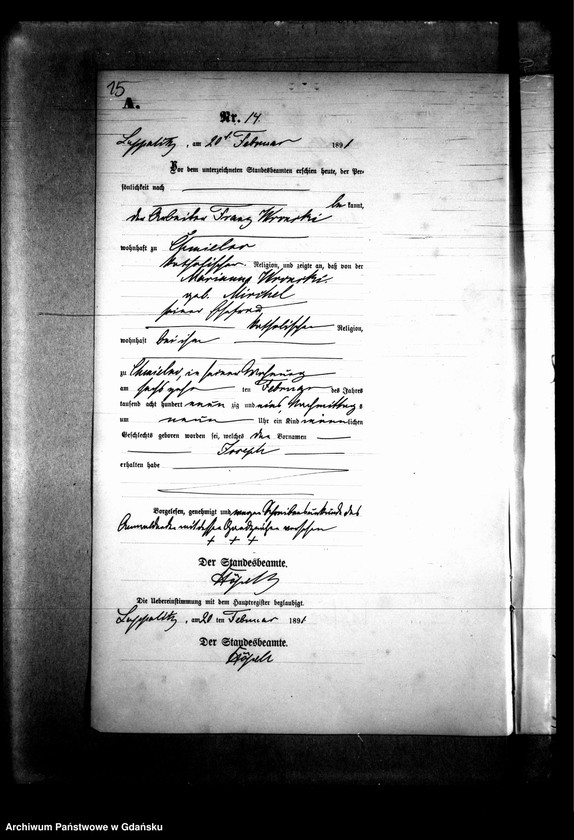 15
A.
Nr. 14.
am 20t Februar 1891
Vor dem unterzeichneten Standesbeamten erschien heute, der Per-
sönlichkeit nach
be kannt,
der Arbeiter Franz Wronski
wohnhaft zu Chmielno
katholischer Religion, und zeigte an, daß von der
Marianna Wronski
geb. Mirchel
seiner Ehefrau
katholischer Religion,
wohnhaft bei ihm
zu Chmielno, in seiner Wohnung
am sechszehn ten Februar des Jahres
tausend acht hundert neun zig und eins Nachmittags
um neun Uhr ein Kind männlichen
Geschlechts geboren worden sei, welches den Vornamen
Joseph
erhalten habe
Vorgelesen, genehmigt und wegen Schreibensunkunde des
Anmeldenden mit dessen Handzeichen versehen
+ + +
Der Standesbeamte.
Die Uebereinstimmung mit dem Hauptregister beglaubigt.
am 20 ten Februar 1891
Der Standesbeamte.
Archiwum Państwowe w Gdańsku